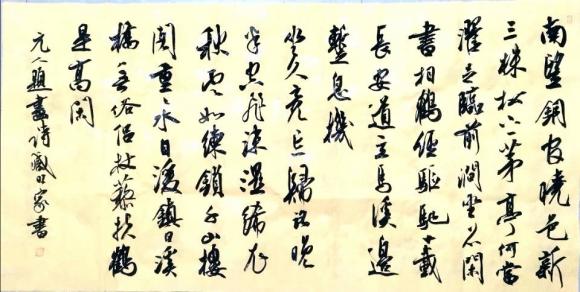 南望銅官曉色新
三株松下茅亭何當
濯足臨前澗坐石閑
書相鶴經驅馳十載
長安道立馬溪邊
暫息機
坐久竟忘歸路晚
半空飛沫濕絺衣
秋雲如練鎖千山樓
閣重重水自湲鎮日溪
橋無俗侶杖藜扶鶴
是高閑
元人題畫詩 書